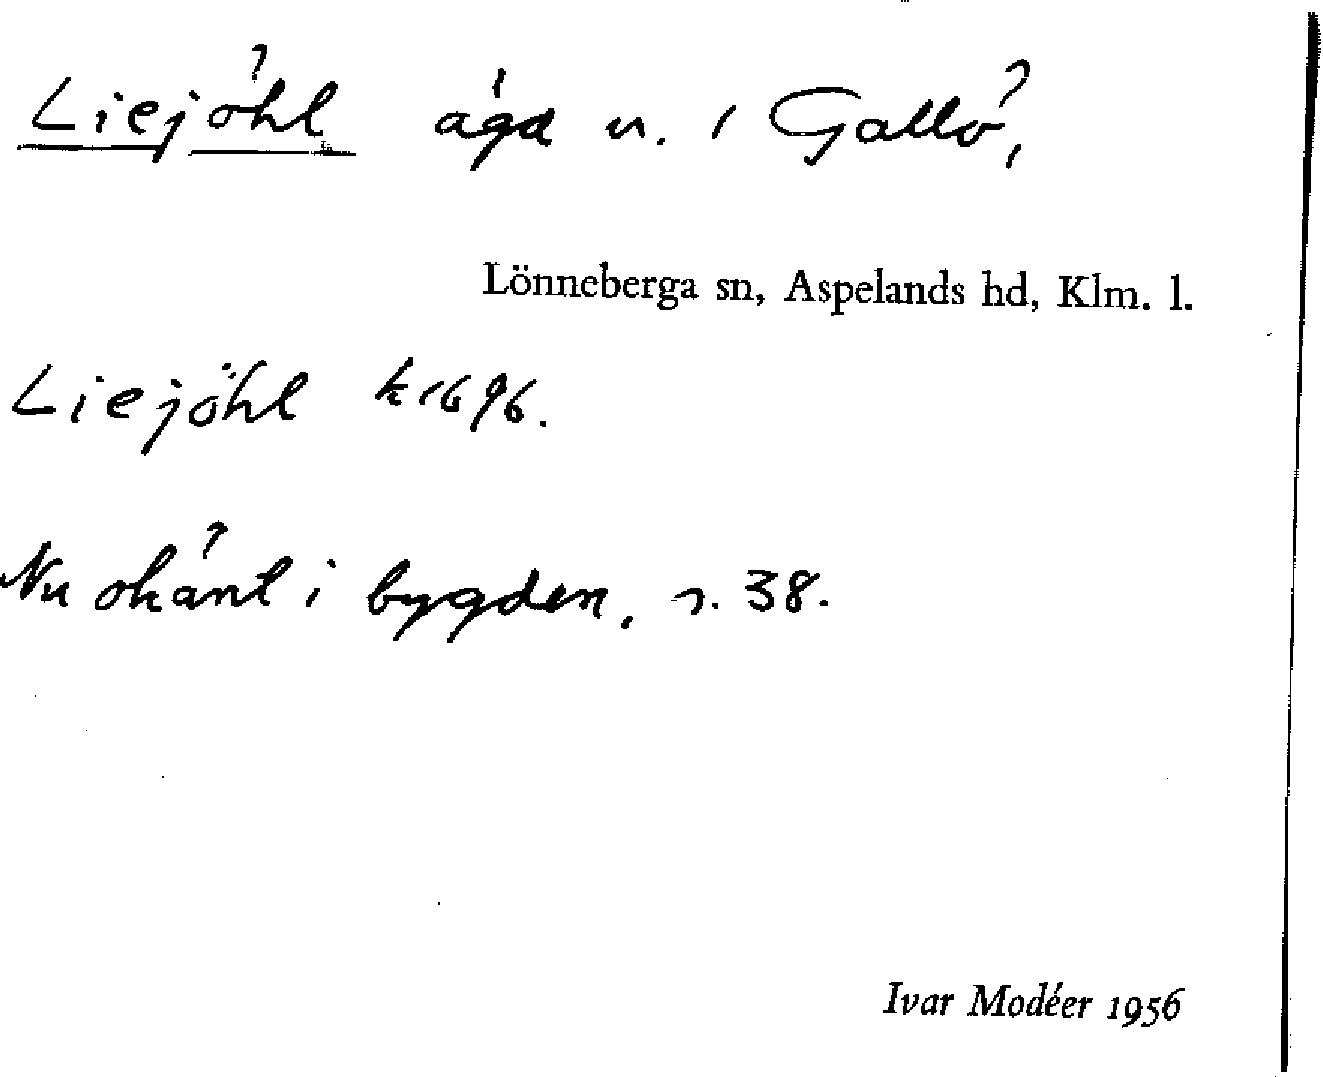 Liejöhl ägd u. i Gallö,
Lönneberga sn, Aspelands hd, Klm. l.
Liejöhl k 1696.
Nu okänt i bygden, s. 38.
Ivar Modéer 1956